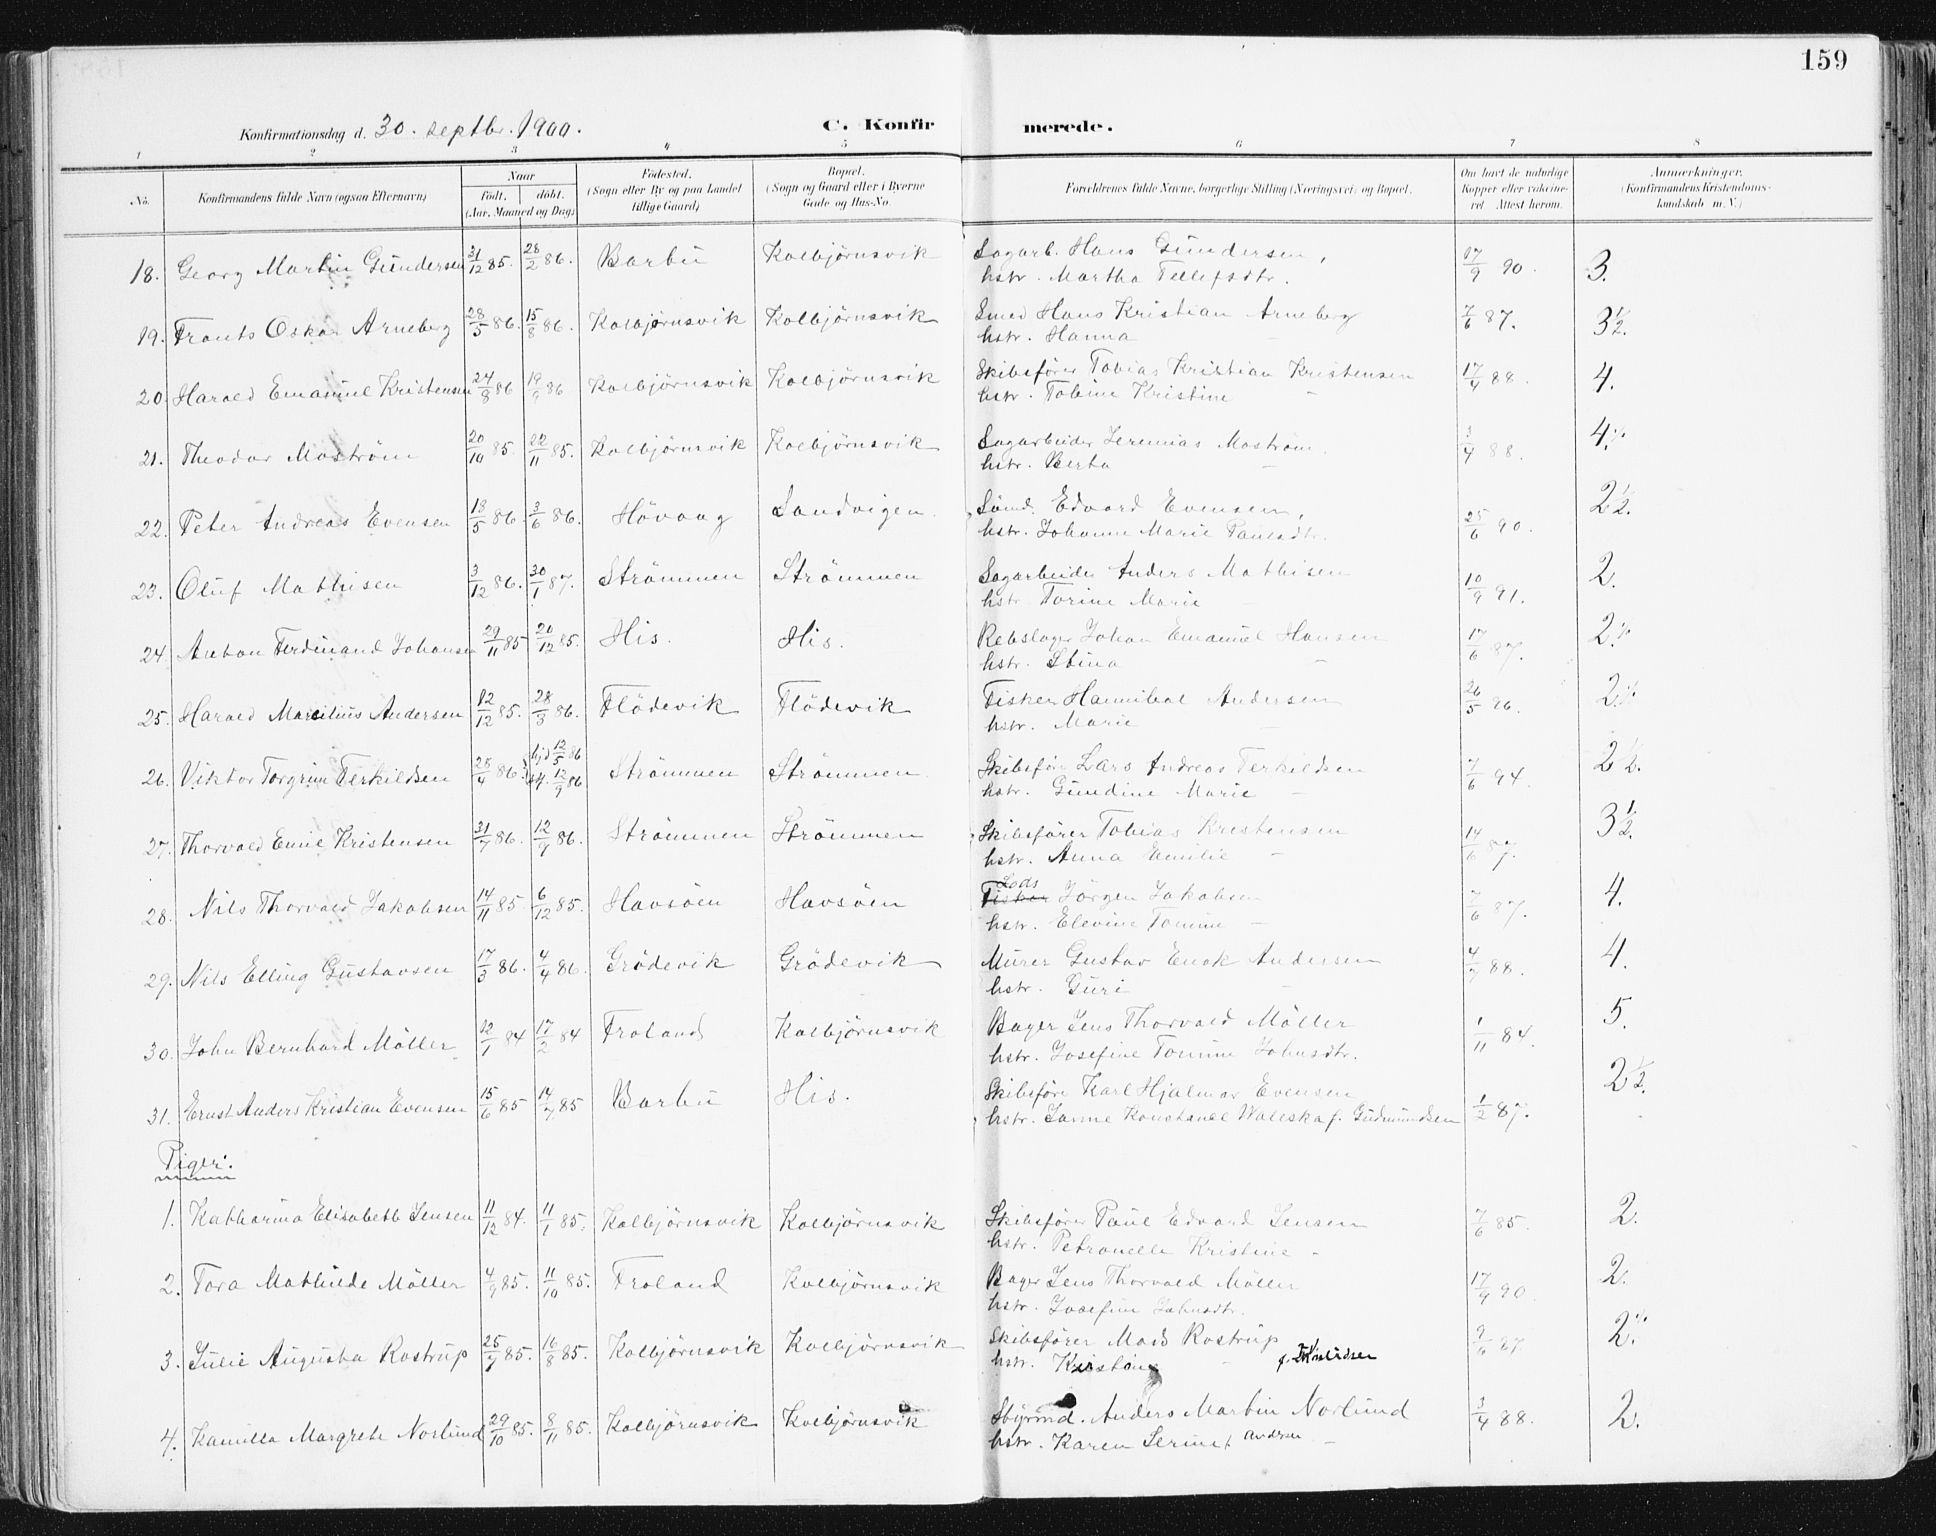 159
Konfirmationsdag d. 30. septbr. 1900.
C. Konfirmerede.
1 2 3 4 5 6 7 8
No.
Konfirmandens fulde Navn (ogsaa Efternavn)
Naar
födt. döbt.
(Aar, Maaned og Dag)
Födested.
(Sogn eller By og paa Landet
tillige Gaard)
Bopæl.
(Sogn og Gaard eller i Byerne
Gade og Hus-No.
Forældrenes fulde Navne, borgerlige Stilling (Næringsvei) og Bopæl.
Om havt de naturlige
Kopper eller vakcine-
ret Attest herom.
Anmærkninger.
(Konfirmandens Kristendoms-
kundskab m. V.)
18. Georg Martin Gundersen 31/12 85. 28/2 86. Barbu Kolbjörnsvik Sagarb. Hans Gundersen, 17/9 90. 3.
hstr. Martha Tellefsdtr.
19. Frants Oskar Arneberg 28/5 86. 15/8 86. Kolbjörnsvik Kolbjörnsvik Smed Hans Kristian Arneberg 7/6 87. 3 1/2.
hstr. Hanna –
20. Harald Emanuel Kristensen 24/8 86 19/9 86 Kolbjörnsvik Kolbjörnsvik Skibsförer Tobias Kristian Kristensen 17/4 88. 4.
hstr. Tobine Kristine –
21. Theodor Moström 20/10 85. 22/11 85. Kolbjörnsvik Kolbjörnsvik Sagarbeider Jeremias Moström. 3/4 88. 4.
hstr. Berta –
22. Peter Andreas Evensen 18/5 86. 3/6 86. Hövaag Sandvigen. Sömd. Edvard Evensen, 25/6 90. 2 1/2.
hstr. Johanne Marie Paulsdtr.
23. Oluf Mathisen 3/12 86. 30/1 87. Strömmen Strömmen Sagarbeider Anders Mathisen 10/9 91. 2.
hstr. Torine Marie –
24. Anton Ferdinand Johansen 29/11 85 20/12 85. His. His. Rebslager Johan Emanuel Hansen 17/6 87. 2.
hstr. Stina –
25. Harald Marcilius Andersen 12/12 85. 28/3 86. Flödevik Flödevik Fisker Hannibal Andersen 26/5 86. 2.
hstr. Marie –
26. Viktor Torgrim Terkildsen 28/4 86. hjd 12/5 86 Strömmen Strömmen Skibsför. Lars Andreas Terkildsen 7/6 94. 2 1/2.
st. 12/9 86 hstr. Gundine Marie –
27. Thorvald Emil Kristensen 31/7 86. 12/9 86. Strömmen Strömmen Skibsförer Tobias Kristensen 14/6 87. 3 1/2.
hstr. Anna Emilie –
28. Nils Thorvald Jakobsen 14/11 85 6/12 85. Havsöen Havsöen Fisker Lods Jörgen Jakobsen 7/6 87. 4.
hstr. Elevine Tomine –
29. Nils Elling Gustavsen 17/3 86. 4/4 86. Grödevik Grödevik Murer Gustav Enok Andersen 4/7 88. 4.
hstr. Guri –
30. John Bernhard Möller 12/1 84 17/2 84 Froland Kolbjörnsvik Bager Jens Thorvald Möller 1/11 84. 5.
hstr. Josefine Tomine Johnsdtr.
31. Ernst Anders Kristian Evensen 15/6 85 14/7 85 Barbu His. Skibsför. Karl Hjalmar Evensen 1/2 87. 2 1/2.
hstr. Janne Konstance Waleska f. Gudmundsen
Piger.
1. Katharina Elisabeth Jensen 11/12 84. 11/1 85. Kolbjörnsvik Kolbjörnsvik Skibsförer Paul Edvard Jensen 7/6 85. 2.
hstr. Petronelle Kristine –
2. Tora Mathilde Möller 4/9 85. 11/10 85. Froland Kolbjörnsvik Bager Jens Thorvald Möller 17/9 90. 2.
hstr. Josefine Johnsdtr.
3. Julie Augusta Rostrup 25/7 85. 16/8 85. Kolbjörnsvik Kolbjörnsvik Skibsförer Mads Rostrup 87. 2.
hstr. Kirstine –
4. Kamilla Margrete Norlund 29/10 85. 8/11 85. Kolbjörnsvik Kolbjörnsvik Styrmd. Anders Martin Norlund 3/4 88. 2.
hstr. Karen Serine f. Andersen –